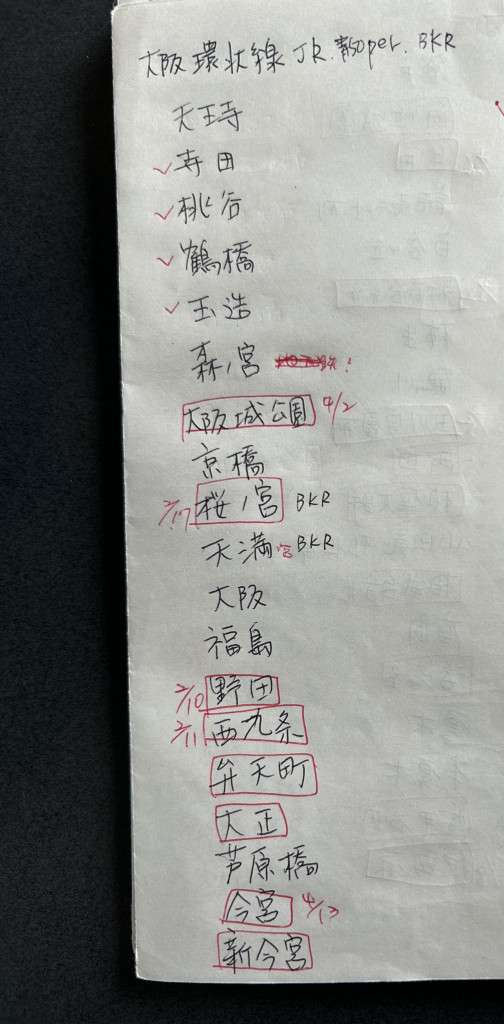 大阪環状線 JR. per. BKR
天王寺
✓寺田
✓桃谷
✓鶴橋
✓玉造
森ノ宮
大阪城公園 4/2
京橋
2/17 桜ノ宮 BKR
天満宮 BKR
大阪
福島
2/10 野田
2/11 西九条
弁天町
大正
芦原橋
今宮 4/13
新今宮